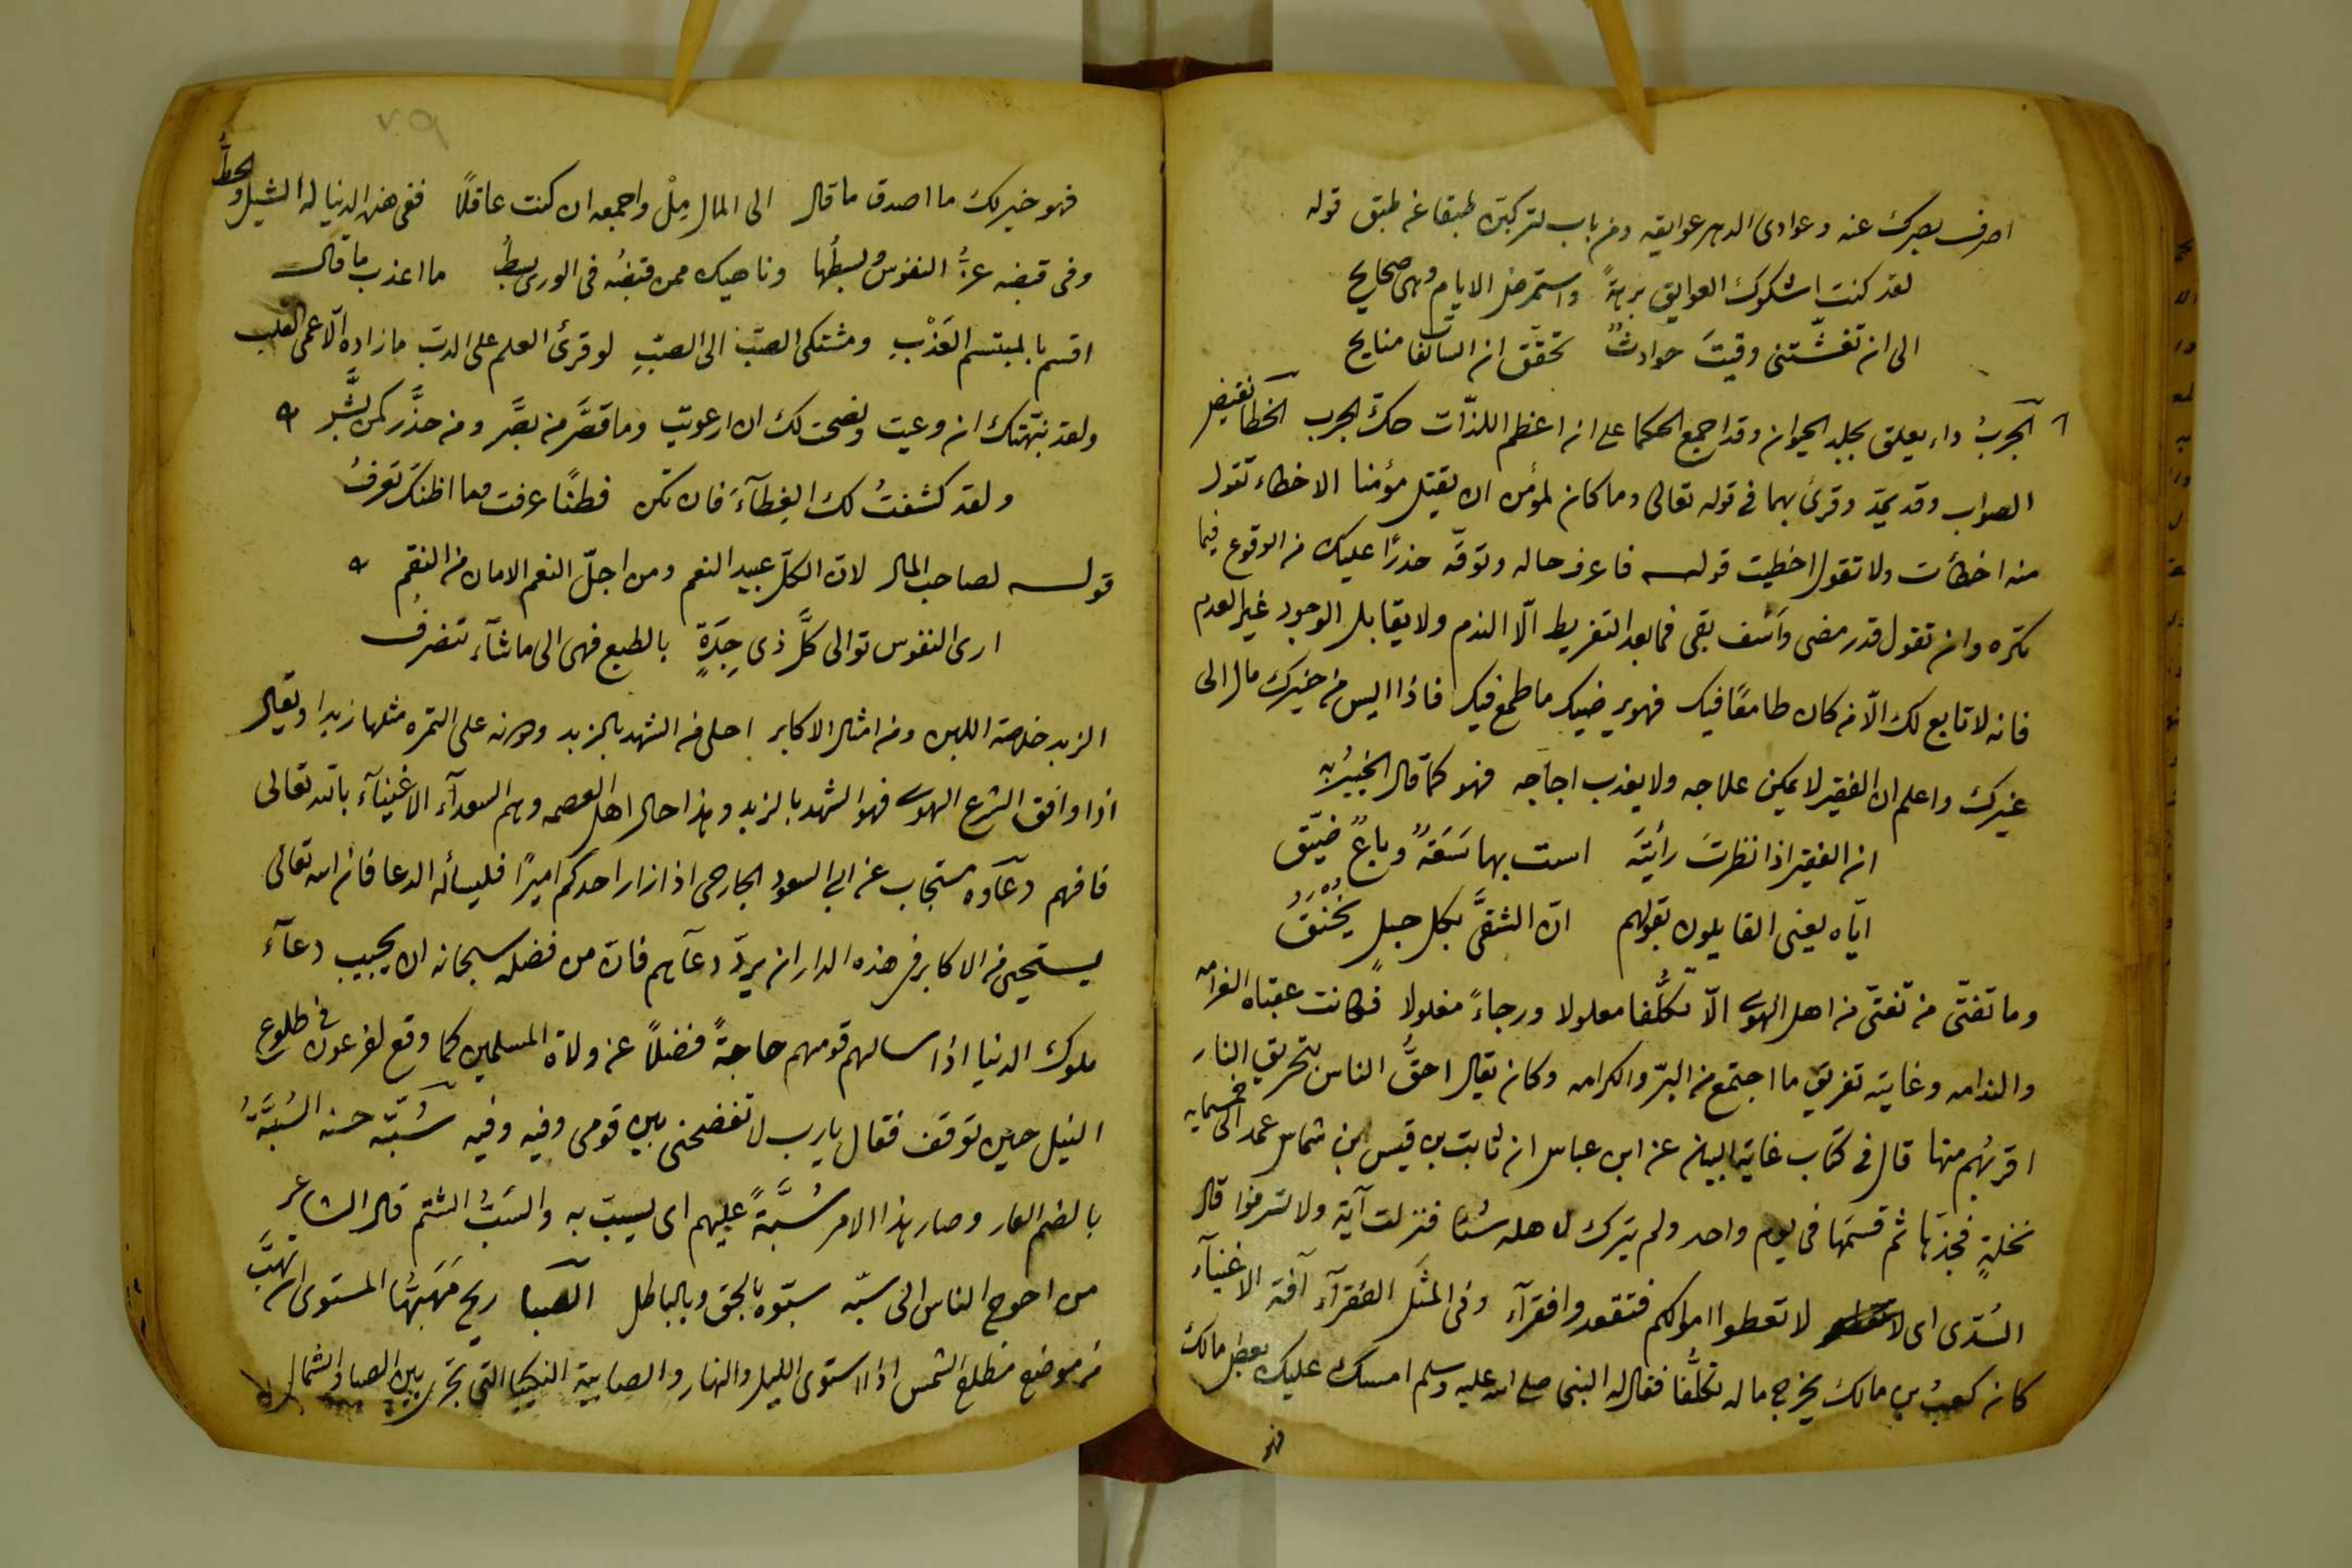 اصرف بصرك عنه وعوادى الدهر عوايقه ومن باب لتركبن طبقا عن طبق قوله
لقد كنت اشكوك العوايق برهةً واستمرض الايام وهى صحايح
الى ان تغشّتنى وقيتَ حوادثٌ تحقّق ان السالفات منايح
الجربُ داء يعلق بجلد الحيوان وقد اجمع الحكما على ان اعظم اللذّات حكّ الجرب الخطا نقيض
الصواب وقد يمدّ وقرئ بهما فى قوله تعالى وما كان لمؤمن ان يقتل مؤمنا الا خطاء تقول
منه اخطأت ولا تقول اخطيت قوله فاعرف حاله وتوقّه حذرًا عليك من الوقوع فيما
تكره وان تقول قدر مضى وأسف بقى فما بعد التفريط الّا الندم ولا يقابل الوجود غير العدم
فانه لا تابع لك الّا من كان طامعًا فيك فهو يرضيك ما طمع فيك فاذا ايس من خيرك مال الى
غيرك واعلم ان الفقير لا يمكن علاجه ولا يعذب اجاجه فهو كما قال الخبيرُ به
ان الفقير اذا نظرتَ رأيتَه است بها سَعَةٌ وباعٌ ضيّق
ايّاه يعنى القايلون بقولهم انّ الشقىَّ بكل حبلٍ يُخْنَقُ
وما تفتّى من تفتّى من اهل الهوى الّا تكلُّفا معلولا ورجاءً مغلولا فكانت عقباه الغرامه
والندامه وغايته تفريق ما اجتمع من البرّ والكرامه وكان يقال احقُّ الناس بتحريق النار
اقربُهم منها قال فى كتاب غاية البيان عن ابن عباس ان ثابت بن قيس بن شماس عمد الى خمسمايه
نخلةٍ فجذّها ثم قسمَها فى يوم واحد ولم يترك لاهله شيئا فنزلت آية ولا تسرفوا قال
السُدّى اى لا تعطوا اموالكم فتقعدوا فقرآء وفى المثَل الفقرآء آفة الاغنيآء
كان كعبُ بن مالك يخرج ماله تكلُّفًا فقال له النبى صلى الله عليه وسلم امسك عليك بعض مالك
فهو
٧٩
فهو خير لك ما اصدق ما قال الى المال مِلْ واجمعه ان كنت عاقلًا ففى هذه الدنيا له الشيل والحطُّ
وفى قبضه عزُّ النفوس وبسطُها وناهيك ممن قبضُه فى الورى بسطُ ما اعذب ما قال
اقسم بالمبتسم العَذْبِ ومشتكى الصبّ الى الصبِّ لو قرئ العلم على الدب ما زاده الّا عمى القلب
ولقد نبّهتك ان وعيت ونصحت لك ان ارعويت وما قصَّر من بصَّر ومن حذَّر كمن بشَّر
ولقد كشفتُ لك الغِطآءَ فان تكن فطنًا عرفت وما اظنك تَعرفُ
قوله لصاحب المال لانّ الكلّ عبيد النعم ومن اجلّ النعم الامان من النقم
ارى النفوس توالى كلَّ ذى جِدَةٍ بالطبع فهى الى ما شآء تنصرفُ
الزبد خلاصة اللبن ومن امثال الاكابر احلى من الشهد بالزبد وهونه على التمره مثلها زبدا ويقال
اذا وافق الشرع الهوى فهو الشهد بالزبد وهذا حال اهل العصمه وهم السعدآء الاغنيآء بالله تعالى
فافهم دعآوه مستجاب عن ابى السعود الجارحى اذا زار احدكم اميرًا فليسأله الدعا فان الله تعالى
يستحيى من الاكابر فى هذه الدار ان يردّ دعآهم فانّ من فضله سبحانه ان يجيب دعآءَ
ملوك الدنيا اذا سالهم قومهم حاجةً فضلًا عن ولاة المسلمين كما وقع لفرعون فى طلوع
النيل حين توقف فقال يا رب لا تفضحنى بين قومى وفيه وفيه سُبّه حسنه السُبَّةُ
بالضم العار وصار هذا الامر سُبَّةً عليهم اى يسبّ به والسَبُّ الشتم قال الشاعر
من احوج الناس الى سبّه سبّوه بالحق وبالباطل الصبا ريح مَهَبُّها المستوى ان تهبَّ
من موضع مطلع الشمس اذا استوى الليل والنهار والصابية النكيبا التى تجرى بين الصبا والشمال